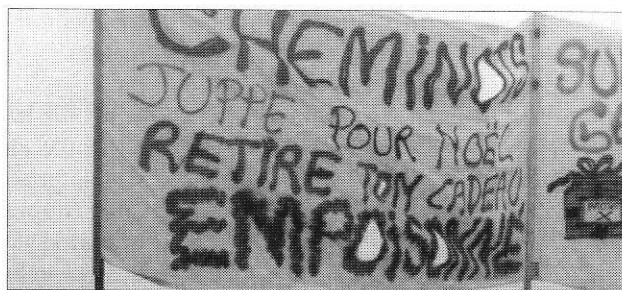 CHEMINOTS
JUPPE POUR NOËL
RETIRE TON CADEAU
EMPOISONNE
SU